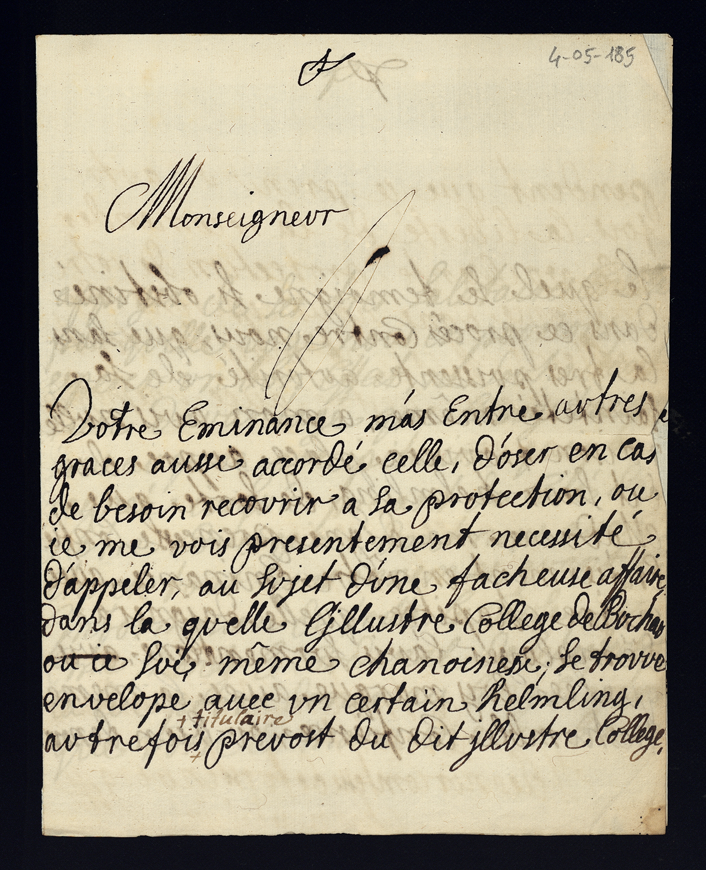 4-05-185
Monseigneur
Votre Eminance m'as Entre autres
graces ausse accordé celle, d'oser en cas
de besoin recourir a sa protection, ou
ie me vois presentement necessité
d'appeler, au sujet d'une facheuse affaire
dans la quelle Ljllustre College de Buchau
ou ie suis même chanoinese, se trouve
envelope avec un certain helmling,
+ titulaire
autrefois prevost du dit jllustre College,